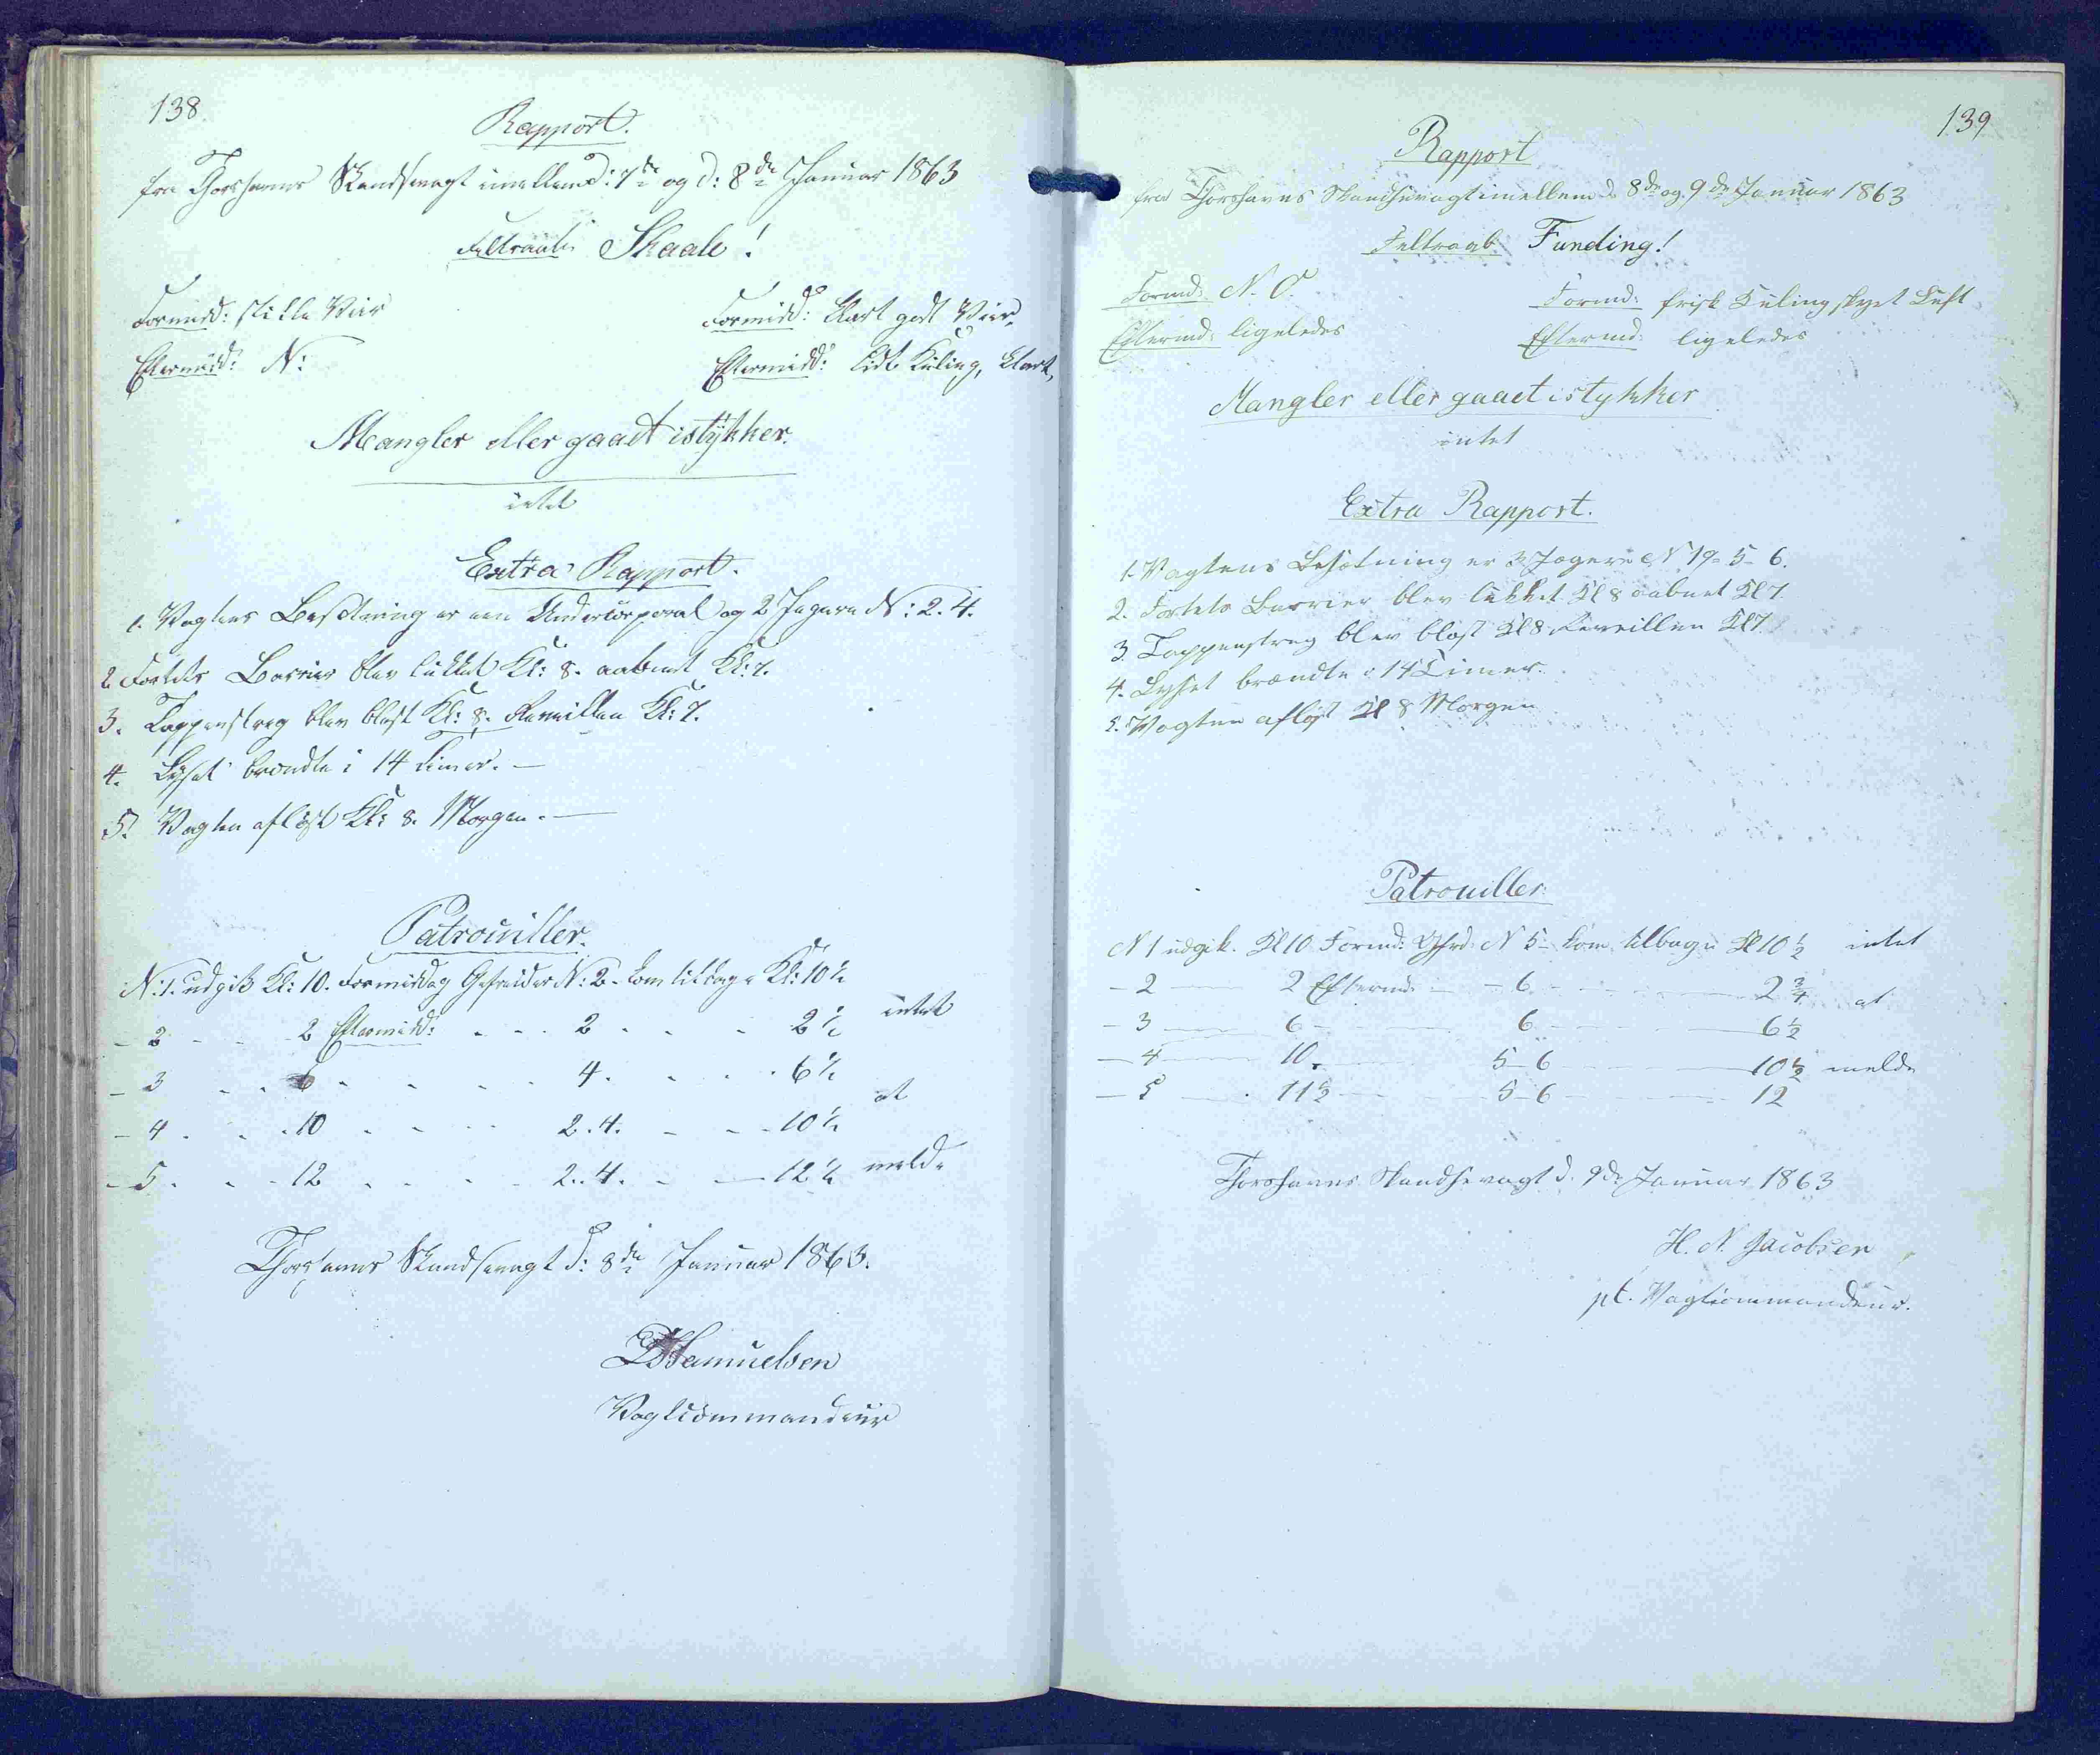 138.
Rapport.
fra Thorshavns Skandsevagt imellem d: 7de og d: 8de Januar 1863
Feltraab: Skaale!
Formidd: stille Veir
Formidd: klart godt Veir,
Eftermidd: N:
Eftermidd: lidt Kuling, klart,
Mangler eller gaaet istykker.
intet
Extra Rapport.
1. Vagtens Besætning er een Undercorporal og 2 Jægere N: 2. 4.
2. Fortets Barrier blev lukket Kl: 8. aabnet Kl: 7.
3. Tappenstreg blev blæst Kl: 8. Reveillen Kl: 7.
4. Lyset brændte i 14 Timer. —
5. Vagten afløst Kl: 8. Morgen. —
Patrouiller.
N: 1. udgik Kl: 10. Formiddag Gefreider N: 2 - kom tilbage Kl: 10 ½
- 2 - - 2 Eftermidd: - - - 2 - - - 2 ½ intet
- 3 - - 6 - - - - 4. - - - 6 ½
- 4 - - 10 - - - - 2. 4. - - - 10 ½ at
- 5. - - 12 - - - - 2. 4. - - 12 ½ melde
Thorshavns Skandsevagt d: 8de Januar 1863.
Samuelsen
Vagtcommandeur
139
Rapport
fra Thorshavns Skandsevagt imellem d. 8de og 9de Januar 1863
Feltraab: Funding!
Formd: N. O.
Formd: frisk Kuling skyet Luft
Eftermd: ligeledes
Eftermd: ligeledes
Mangler eller gaaet istykker
intet
Extra Rapport.
1. Vagtens Besætning er 3 Jægere N 19 - 5 - 6.
2. Fortets Barrier blev lukket Kl 8 aabnet Kl 7
3. Tappenstreg blev blæst Kl 8 Reveillen Kl 7.
4. Lyset brændte i 14 Timer.
5. Vagten afløst Kl 8 Morgen
Patrouiller
N 1 udgik. Kl 10 Formd: Gfrd. N 5 - kom tilbage Kl 10 ½ intet
- 2 — 2 Eftermd. — - 6 — 2 ¾ at
- 3 — 6 — 6 — 6 ½
- 4 — 10. — 5 - 6 — 10 ½ melde
- 5 — 11 ½ — 5 - 6 — 12
Thorshavns Skandsevagt d. 9de Januar 1863
H. N. Jacobsen
pt. Vagtcommandeur.